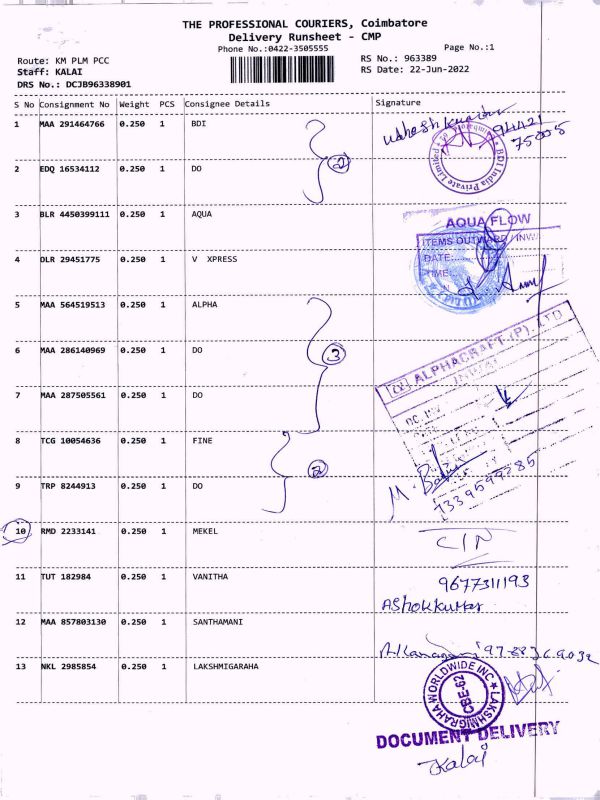 THE PROFESSIONAL COURIERS, Coimbatore
Delivery Runsheet - CMP
Phone No.:0422-3505555
Page No.:1
Route: KM PLM PCC
RS No.: 963389
Staff: KALAI
RS Date: 22-Jun-2022
DRS No.: DCJB96338901
S No Consignment No Weight PCS Consignee Details Signature
1 MAA 291464766 0.250 1 BDI
94421
75005
BDI India Private Limited
2 EDQ 16534112 0.250 1 DO
2
3 BLR 4450399111 0.250 1 AQUA
AQUA FLOW
ITEMS OUTWARD / INW
DATE:
TIME:
4 DLR 29451775 0.250 1 V XPRESS
5 MAA 564519513 0.250 1 ALPHA
ALPHACRAFT (P) LTD
6 MAA 286140969 0.250 1 DO
3
7 MAA 287505561 0.250 1 DO
8 TCG 10054636 0.250 1 FINE
2
9 TRP 8244913 0.250 1 DO
7339599285
10 RMD 2233141 0.250 1 MEKEL
CIN
11 TUT 182984 0.250 1 VANITHA
9677311193
Ashokkumar
12 MAA 857803130 0.250 1 SANTHAMANI
13 NKL 2985854 0.250 1 LAKSHMIGARAHA
LAKSHMIGRAHA WORLDWIDE INC
CBE-62
DOCUMENT DELIVERY
Kalai